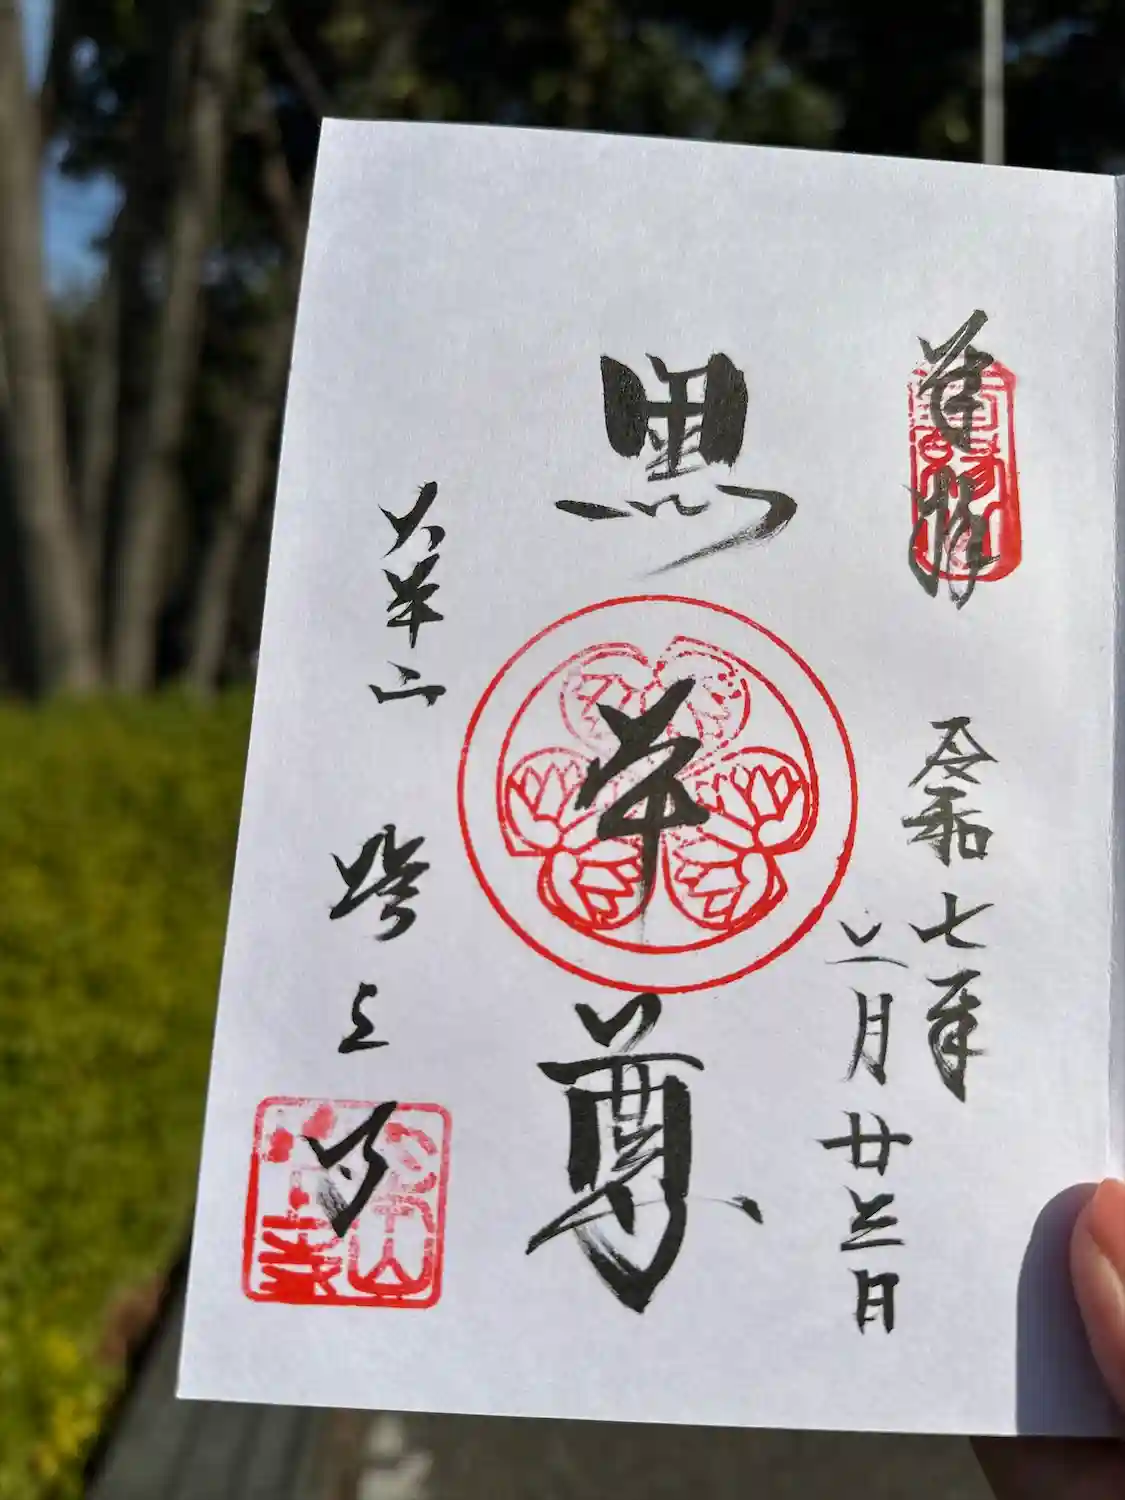 奉拝
令和七年
二月廿三日
黒本尊
大本山 増上寺